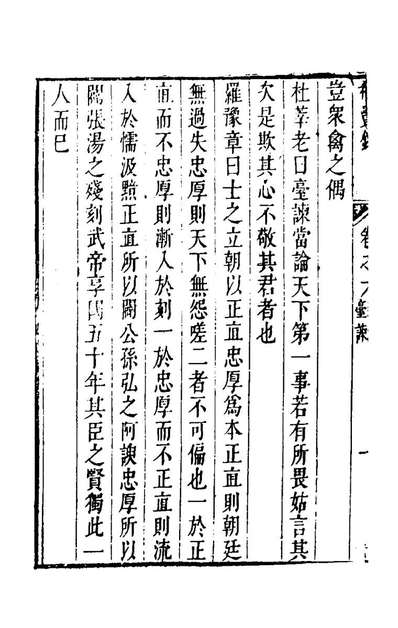 豈衆禽之偶
杜莘老曰臺諫當論天下第一事若有所畏姑言其
次是欺其心不敬其君者也
羅豫章曰士之立朝以正直忠厚爲本正直則朝廷
無過失忠厚則天下無怨嗟二者不可偏也一於正
直而不忠厚則漸入於刻一於忠厚而不正直則流
入於懦汲黯正直所以闢公孫弘之阿諛忠厚所以
闢張湯之殘刻武帝享國五十年其臣之賢獨此一
人而已